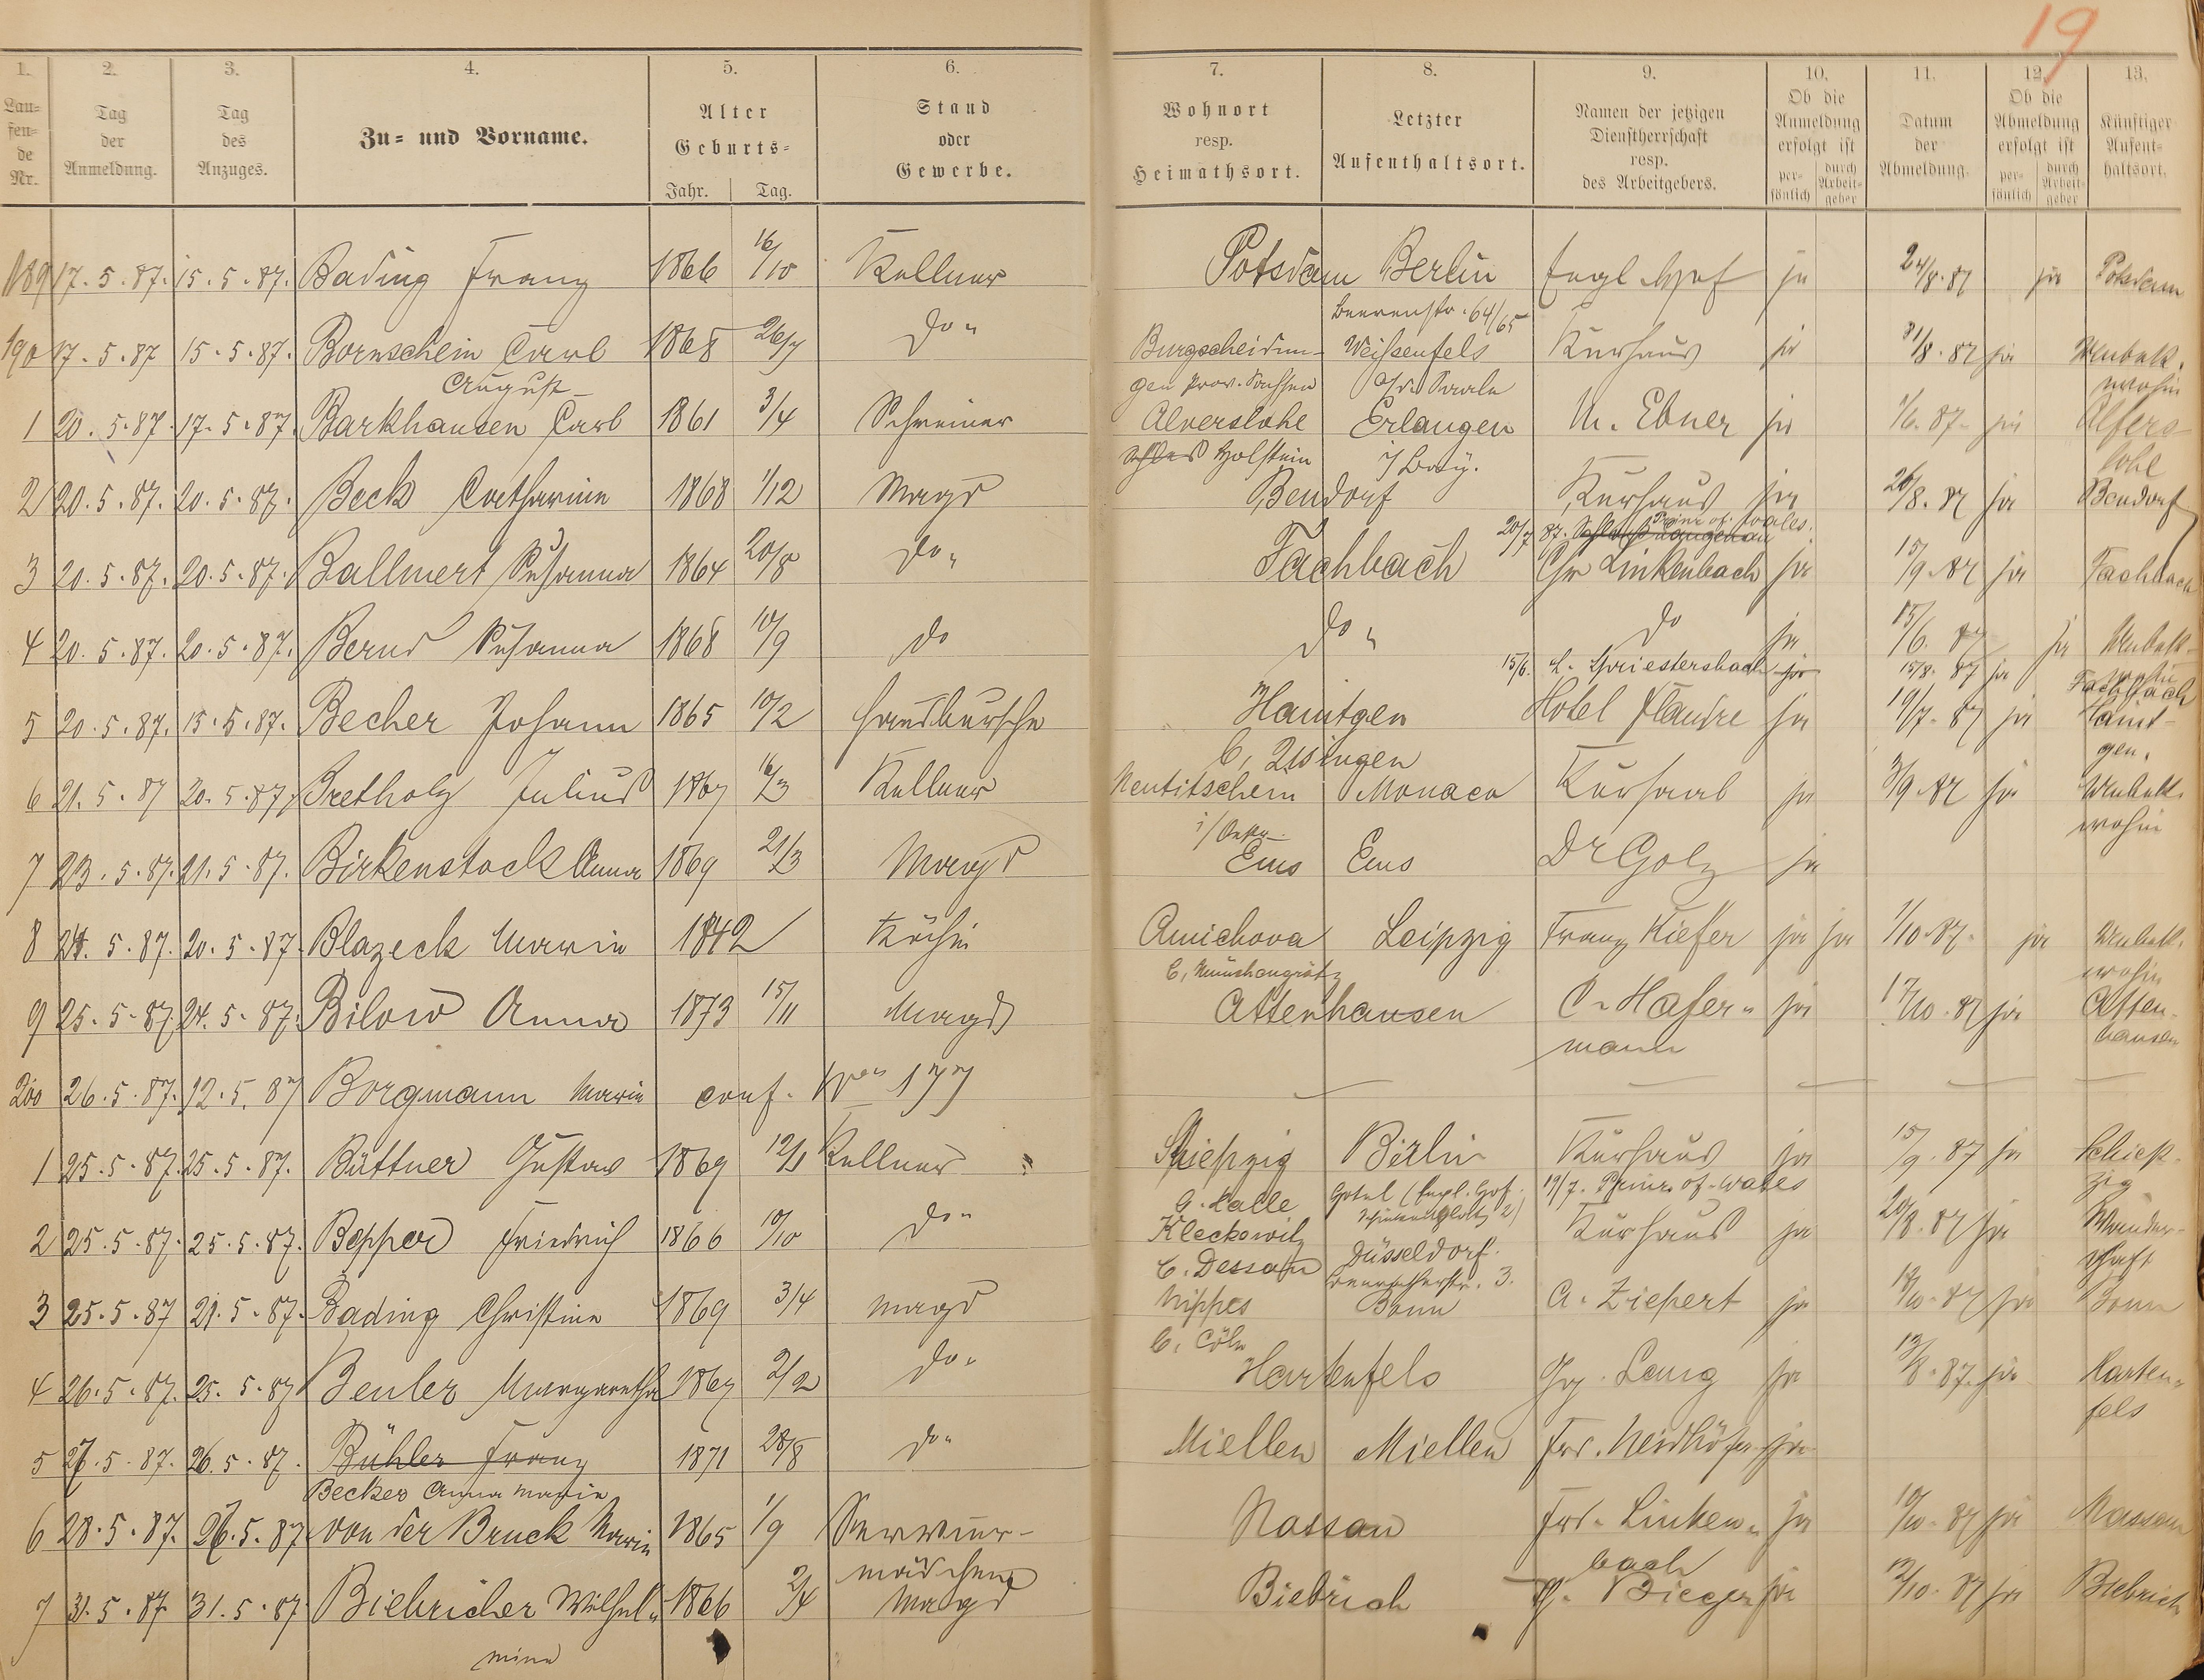 19
1. 2. 3. 4. 5. 6. 7. 8. 9. 10. 11. 12. 13.
Lau=
fen=
de
Nr.
Tag
der
Anmeldung.
Tag
des
Anzuges.
Zu= und Vorname.
Alter
Geburts=
Jahr. Tag.
Stand
oder
Gewerbe.
Wohnort
resp.
Heimathsort.
Letzter
Aufenthaltsort.
Namen der jetzigen
Dienstherrschaft
resp.
des Arbeitgebers.
Ob die
Anmeldung
erfolgt ist
per=
sönlich
durch
Arbeit=
geber
Datum
der
Abmeldung.
Ob die
Abmeldung
erfolgt ist
per=
sönlich
durch
Arbeit=
geber
Künftiger
Aufent=
haltsort.
189 17. 5. 87. 15. 5. 87. Bading Franz 1866 16/10 Kellner Potsdam Berlin Engl. Hof ja 24/8. 87 ja Potsdam
64/65
190 17. 5. 87 15. 5. 87. Bornschein Carl 1868 26/7 do " Burgscheidun- Weißenfels Kurhaus ja 31/8. 87 ja Unbek.
August gen Prov. Sachsen a/d. Saale wohin
1 20. 5. 87. 17. 5. 87. Barkhausen Carl 1861 3/4 Schreiner Alverslohe Erlangen M. Ebner ja 1/6. 87. ja Alfers-
Holstein i/Bay. lohe
2 20. 5. 87. 20. 5. 87. Beck Catharine 1868 1/12 Magd Bendorf Kurhaus ja 26/8. 87 ja Bendorf
20/7 87. Schloß Langenau Prinz of Wales.
3 20. 5. 87. 20. 5. 87. Ballmert Susanna 1864 20/8 do " Fachbach Chr Linkenbach ja 15/9. 87 ja Fachbach
4 20. 5. 87. 20. 5. 87. Bernd Susanna 1868 10/9 do do " do ja 15/6. 87 ja Unbek.
15/6. ja 15/8. 87 ja wohin
Fachbach
5 20. 5. 87. 15. 5. 87. Becher Johann 1865 10/2 Hausbursche Haintgen Hotel Flandre ja 19/7. 87 ja Haint-
b, Usingen gen.
6 21. 5. 87 20. 5. 87. Bretholz Julius 1867 16/3 Kellner Neutitschein Monaco Kursaal ja 3/9. 87 ja Unbek.
i/Oestr. wohin
7 23. 5. 87. 21. 5. 87. Birkenstock Anna 1869 21/3 Magd Ems Ems Dr Golz ja
8 24. 5. 87. 20. 5. 87. Blazeck Marie 1842 Köchin Amichova Leipzig Franz Kiefer ja ja 1/10. 87. ja Unbek.
b, Münchengrätz wohin
9 25. 5. 87. 24. 5. 87. Bilow Anna 1873 15/11 Magd Attenhausen C. Hafer= ja 17/10. 87 ja Atten-
mann hausen
200 26. 5. 87. 12. 5. 87 Borgmann Marie conf. No 177
1 25. 5. 87. 25. 5. 87. Büttner Gustav 1869 12/1 Kellner Skiepzig Berlin Kurhaus ja 15/9. 87 ja Schiep-
b. Halle Hotel (Engl. Hof 19/7. Prinz of Wales zig
2 25. 5. 87. 25. 5. 87. Bepper Friedrich 1866 10/10 do " Kleckowitz Düsseldorf. Kurhaus ja 20/8. 87 ja Wander-
b. Dessau 3. schaft
3 25. 5. 87 21. 5. 87. Bading Christine 1869 3/4 Magd Nippes Bonn A. Ziepert ja 18/10. 87 ja Bonn
b, Cöln
4 26. 5. 87. 25. 5. 87 Beuler Margaretha 1867 2/2 do " Hartenfels Gg. Lang ja 12/8. 87. ja Harten-
fels
5 27. 5. 87. 26. 5. 87. Bühler Franz 1871 28/8 do " Miellen Miellen Frd. Neidhöfer ja
Becker Anna Marie
6 28. 5. 87. 26. 5. 87 von der Bruck Marie 1865 1/9 Servier- Nassau Frd. Linken= ja 10/10. 87 ja Nassau
mädchen bach
7 31. 5. 87. 31. 5. 87 Biebricher Wilhel= 1866 2/4 Magd Biebrich Bieger ja 12/10. 87 ja Biebrich
mine